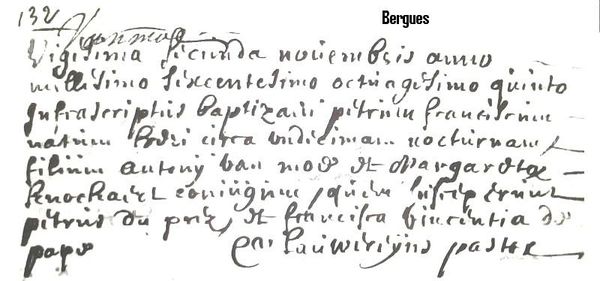 132 Bergues
Vigesima secunda novembris anno
millesimo sixcentesimo octuagesimo quinto
Infrascriptus baptizavi petrum franciscum
natum heri circa undecimam nocturnam
filium antonij van mode et Margaretae
knockaert coniugum, quem susceperunt
petrus du prêz, et francisca vincentia de
pape C. Lauwereyns pastor